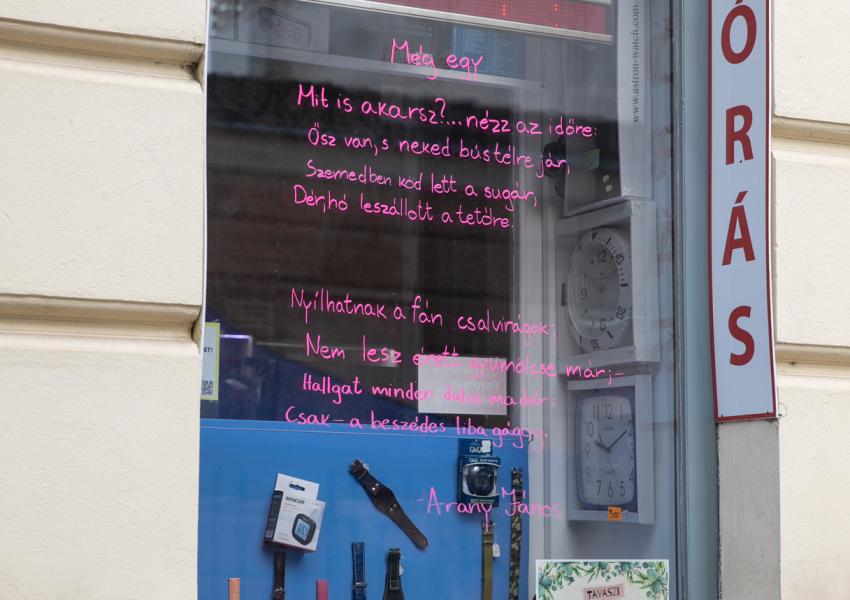 Még egy
Mit is akarsz?...nézz az időre:
Ősz van,s neked bústélre jár,
Szemedben köd lett a sugár,
Dér,hó leszállott a tetőre.
Nyílhatnak a fán csalvirágok;
Nem lesz érett gyümölcse már;-
Hallgat minden dalos madár:
Csak- a beszédes liba gágog.
-Arany János
ÓRÁS
www.astron-watch.com
SENCOR
TAVASZI